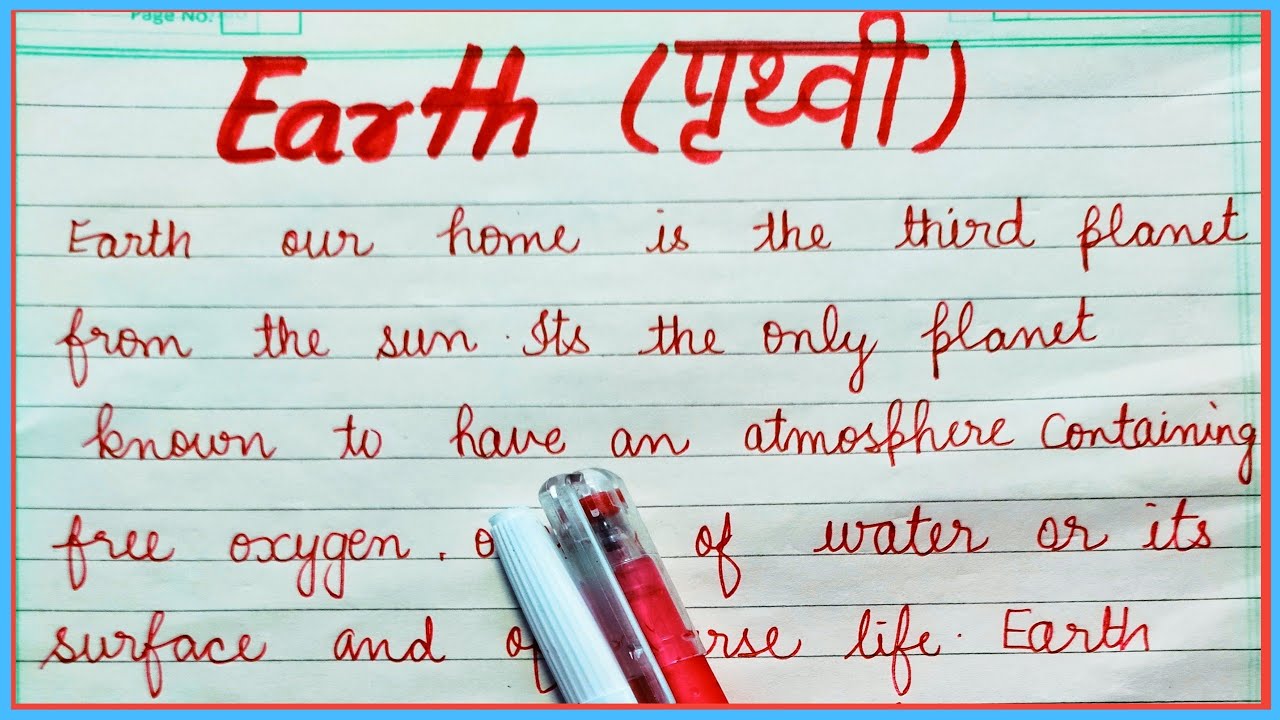 Page No.
Earth (पृथ्वी)
Earth our home is the third planet
from the sun. Its the only planet
known to have an atmosphere containing
free oxygen. of water or its
surface and life. Earth